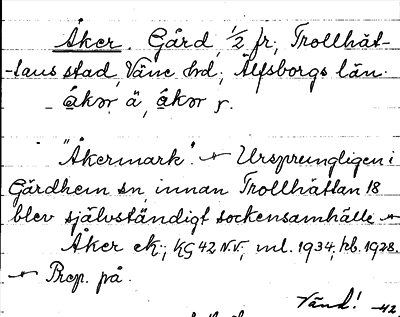 Åker. Gård, 1/2 fr, Trollhät-
-tans stad, Väne hrd; Älfsborgs län.
- åkər, ä, åkər r.
"Åkermark". Ursprungligen i
Gärdhem sn, innan Trollhättan 18
blev självständigt sockensamhälle
Åker ek; KG 42 NV; ml. 1934; hb. 1928.
Prep. på.
Vänd!
-42